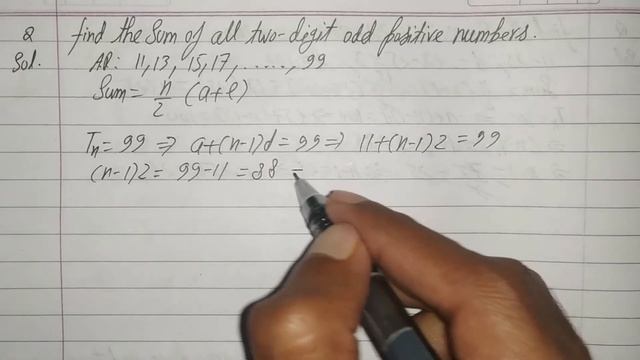 Q find the Sum of all two-digit odd positive numbers.
Sol. AP: 11, 13, 15, 17, ....., 99
Sum = n/2 (a+l)
Tn = 99 ⇒ a+(n-1)d = 99 ⇒ 11+(n-1)2 = 99
(n-1)2 = 99-11 = 88 =